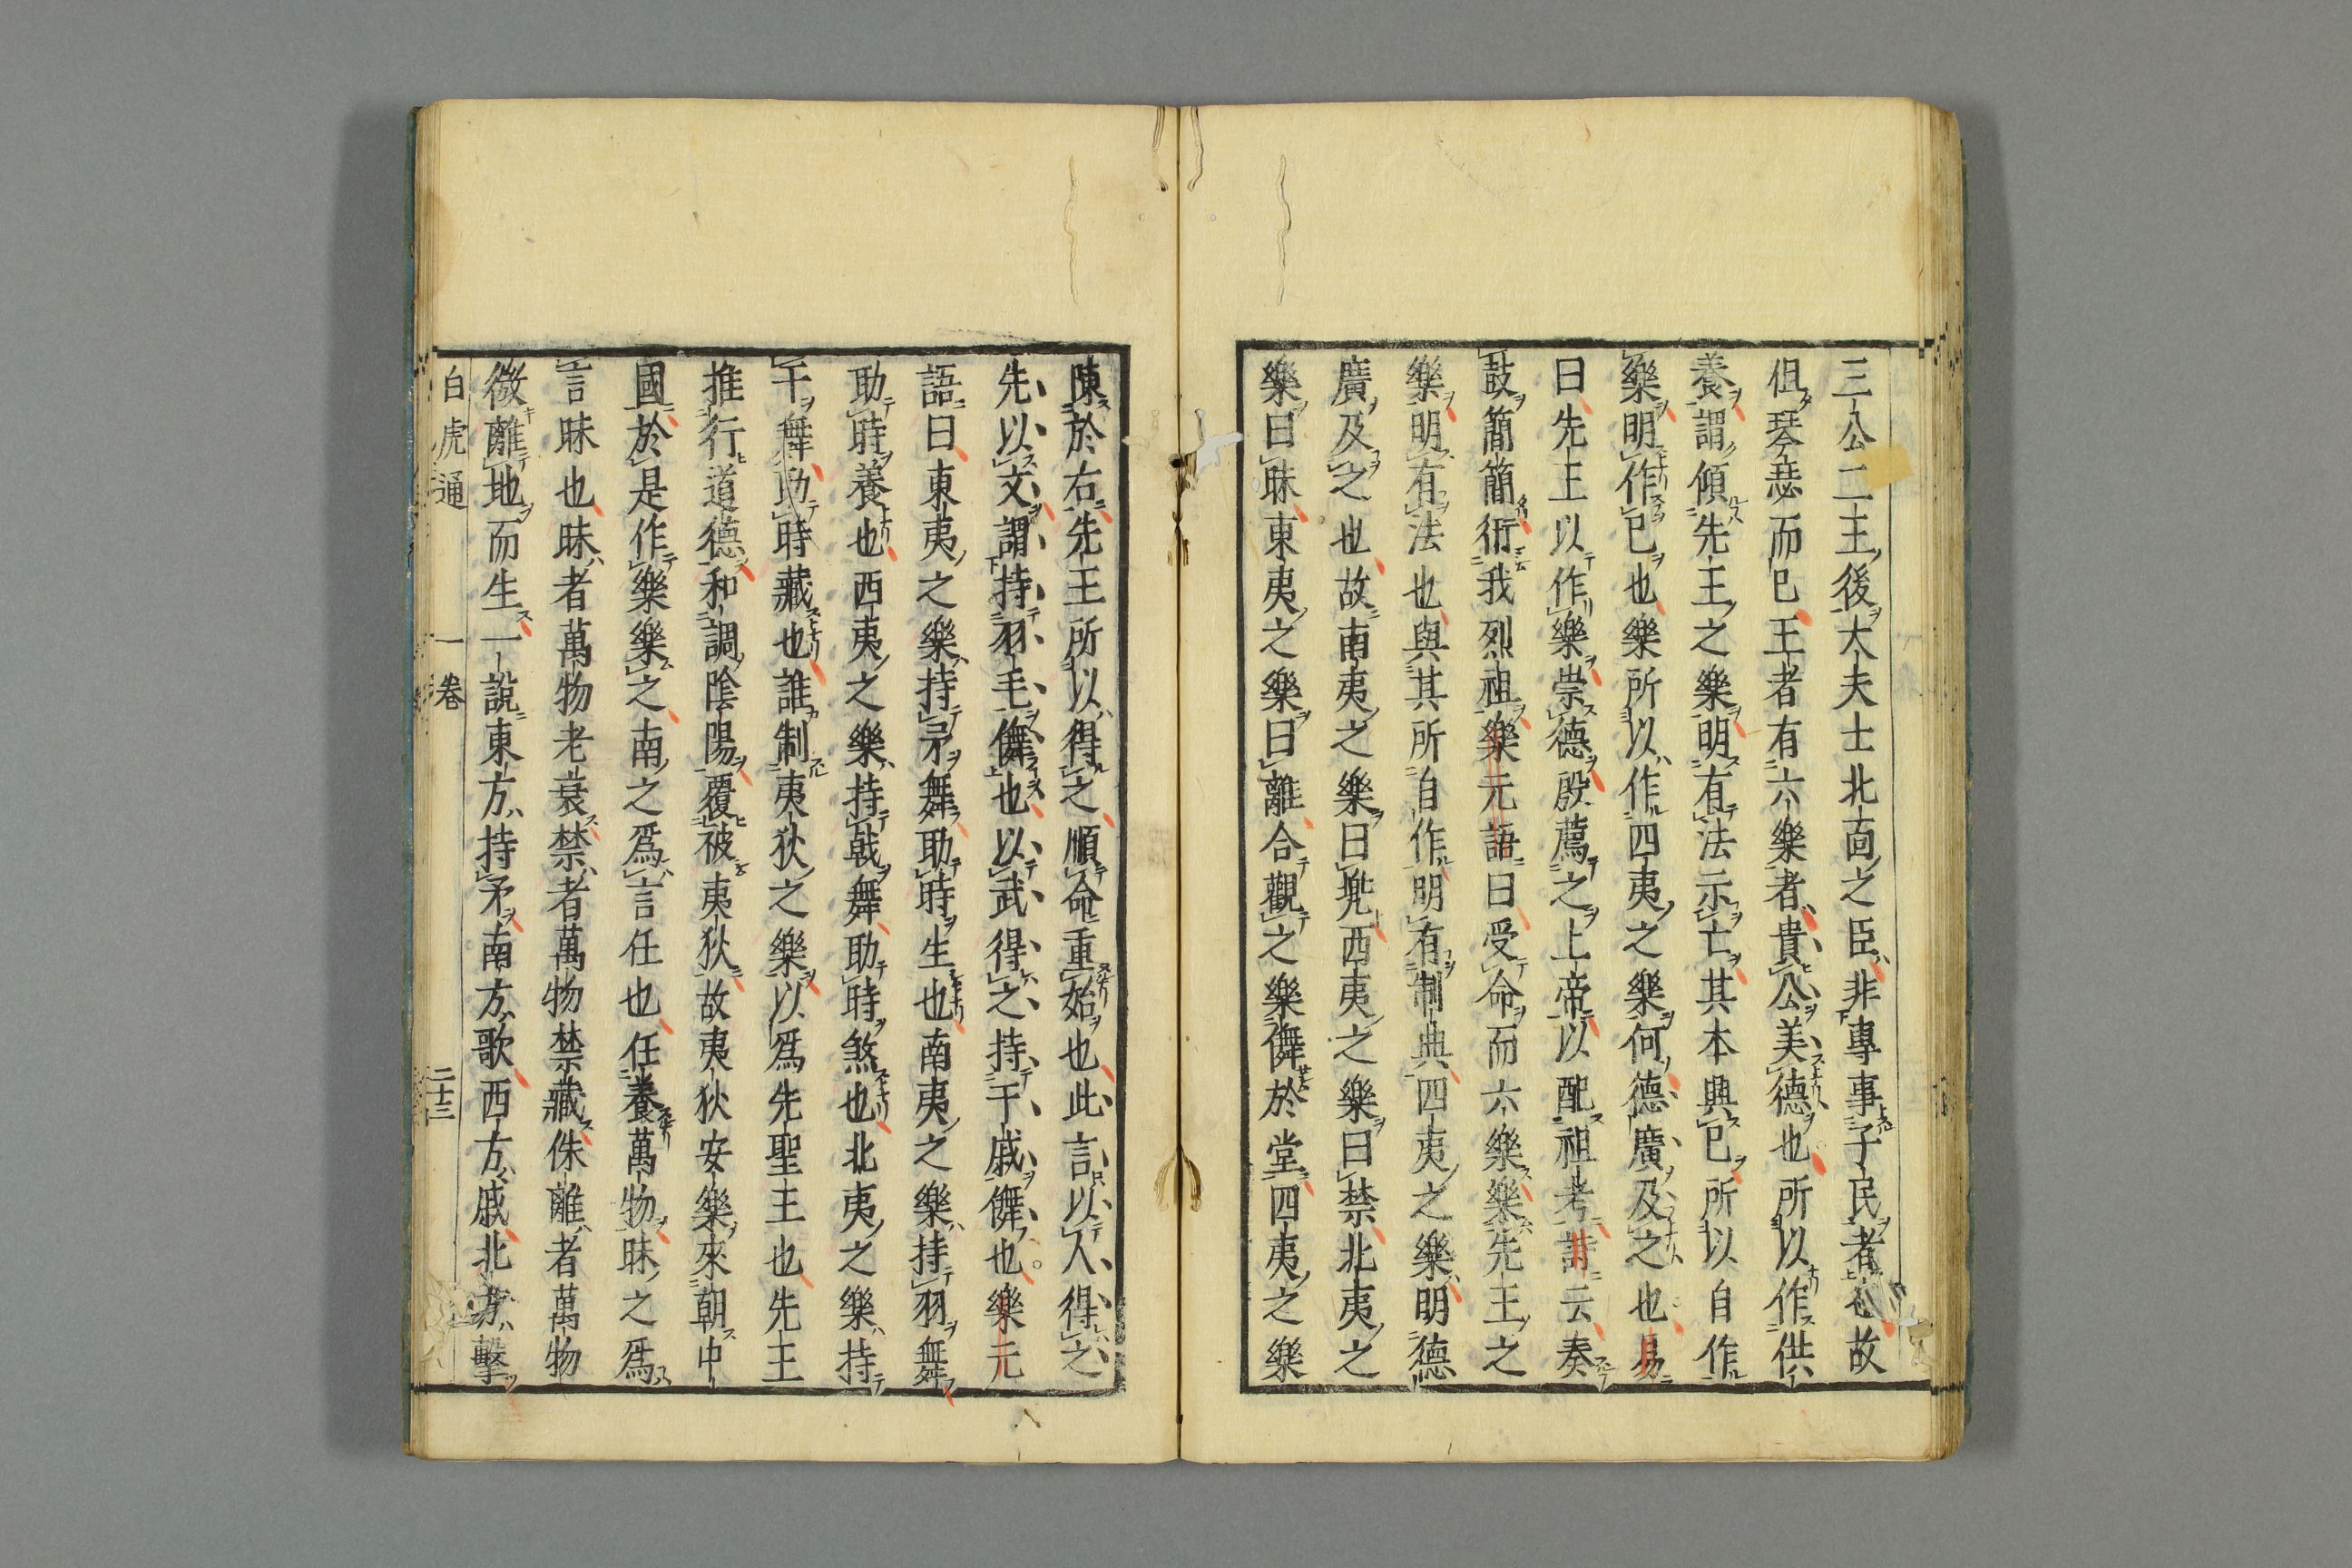 三公二王後大夫士北面之臣非專事子民者也故
但琴瑟而已王者有六樂者貴公美德也所以作供
養謂傾先王之樂明有法示亡其本興已所以自作
樂明作已也樂所以作四夷之樂何德廣及之也易
曰先王以作樂崇德殷薦之上帝以配祖考詩云奏
鼓簡簡衎我烈祖樂元語曰受命而六樂樂先王之
樂明有法也與其所自作明有制典四夷之樂明德
廣及之也故南夷之樂曰兠西夷之樂曰禁北夷之
樂曰昧東夷之樂曰離合觀之樂儛於堂四夷之樂
陳於右先王所以得之順命重始也此言以人得之
先以文謂持羽毛儛也以武得之持干戚儛也樂元
語曰東夷之樂持矛舞助時生也南夷之樂持羽舞
助時養也西夷之樂持戟舞助時煞也北夷之樂持
干舞助時藏也誰制夷狄之樂以爲先聖王也先王
推行道德和調陰陽覆被夷狄故夷狄安樂來朝中
國於是作樂樂之南之爲言任也任養萬物昧之爲
言昧也昧者萬物老衰禁者萬物禁藏侏離者萬物
微離地而生一說東方持矛南方歌西方戚北方擊
白虎通 一卷 二十三